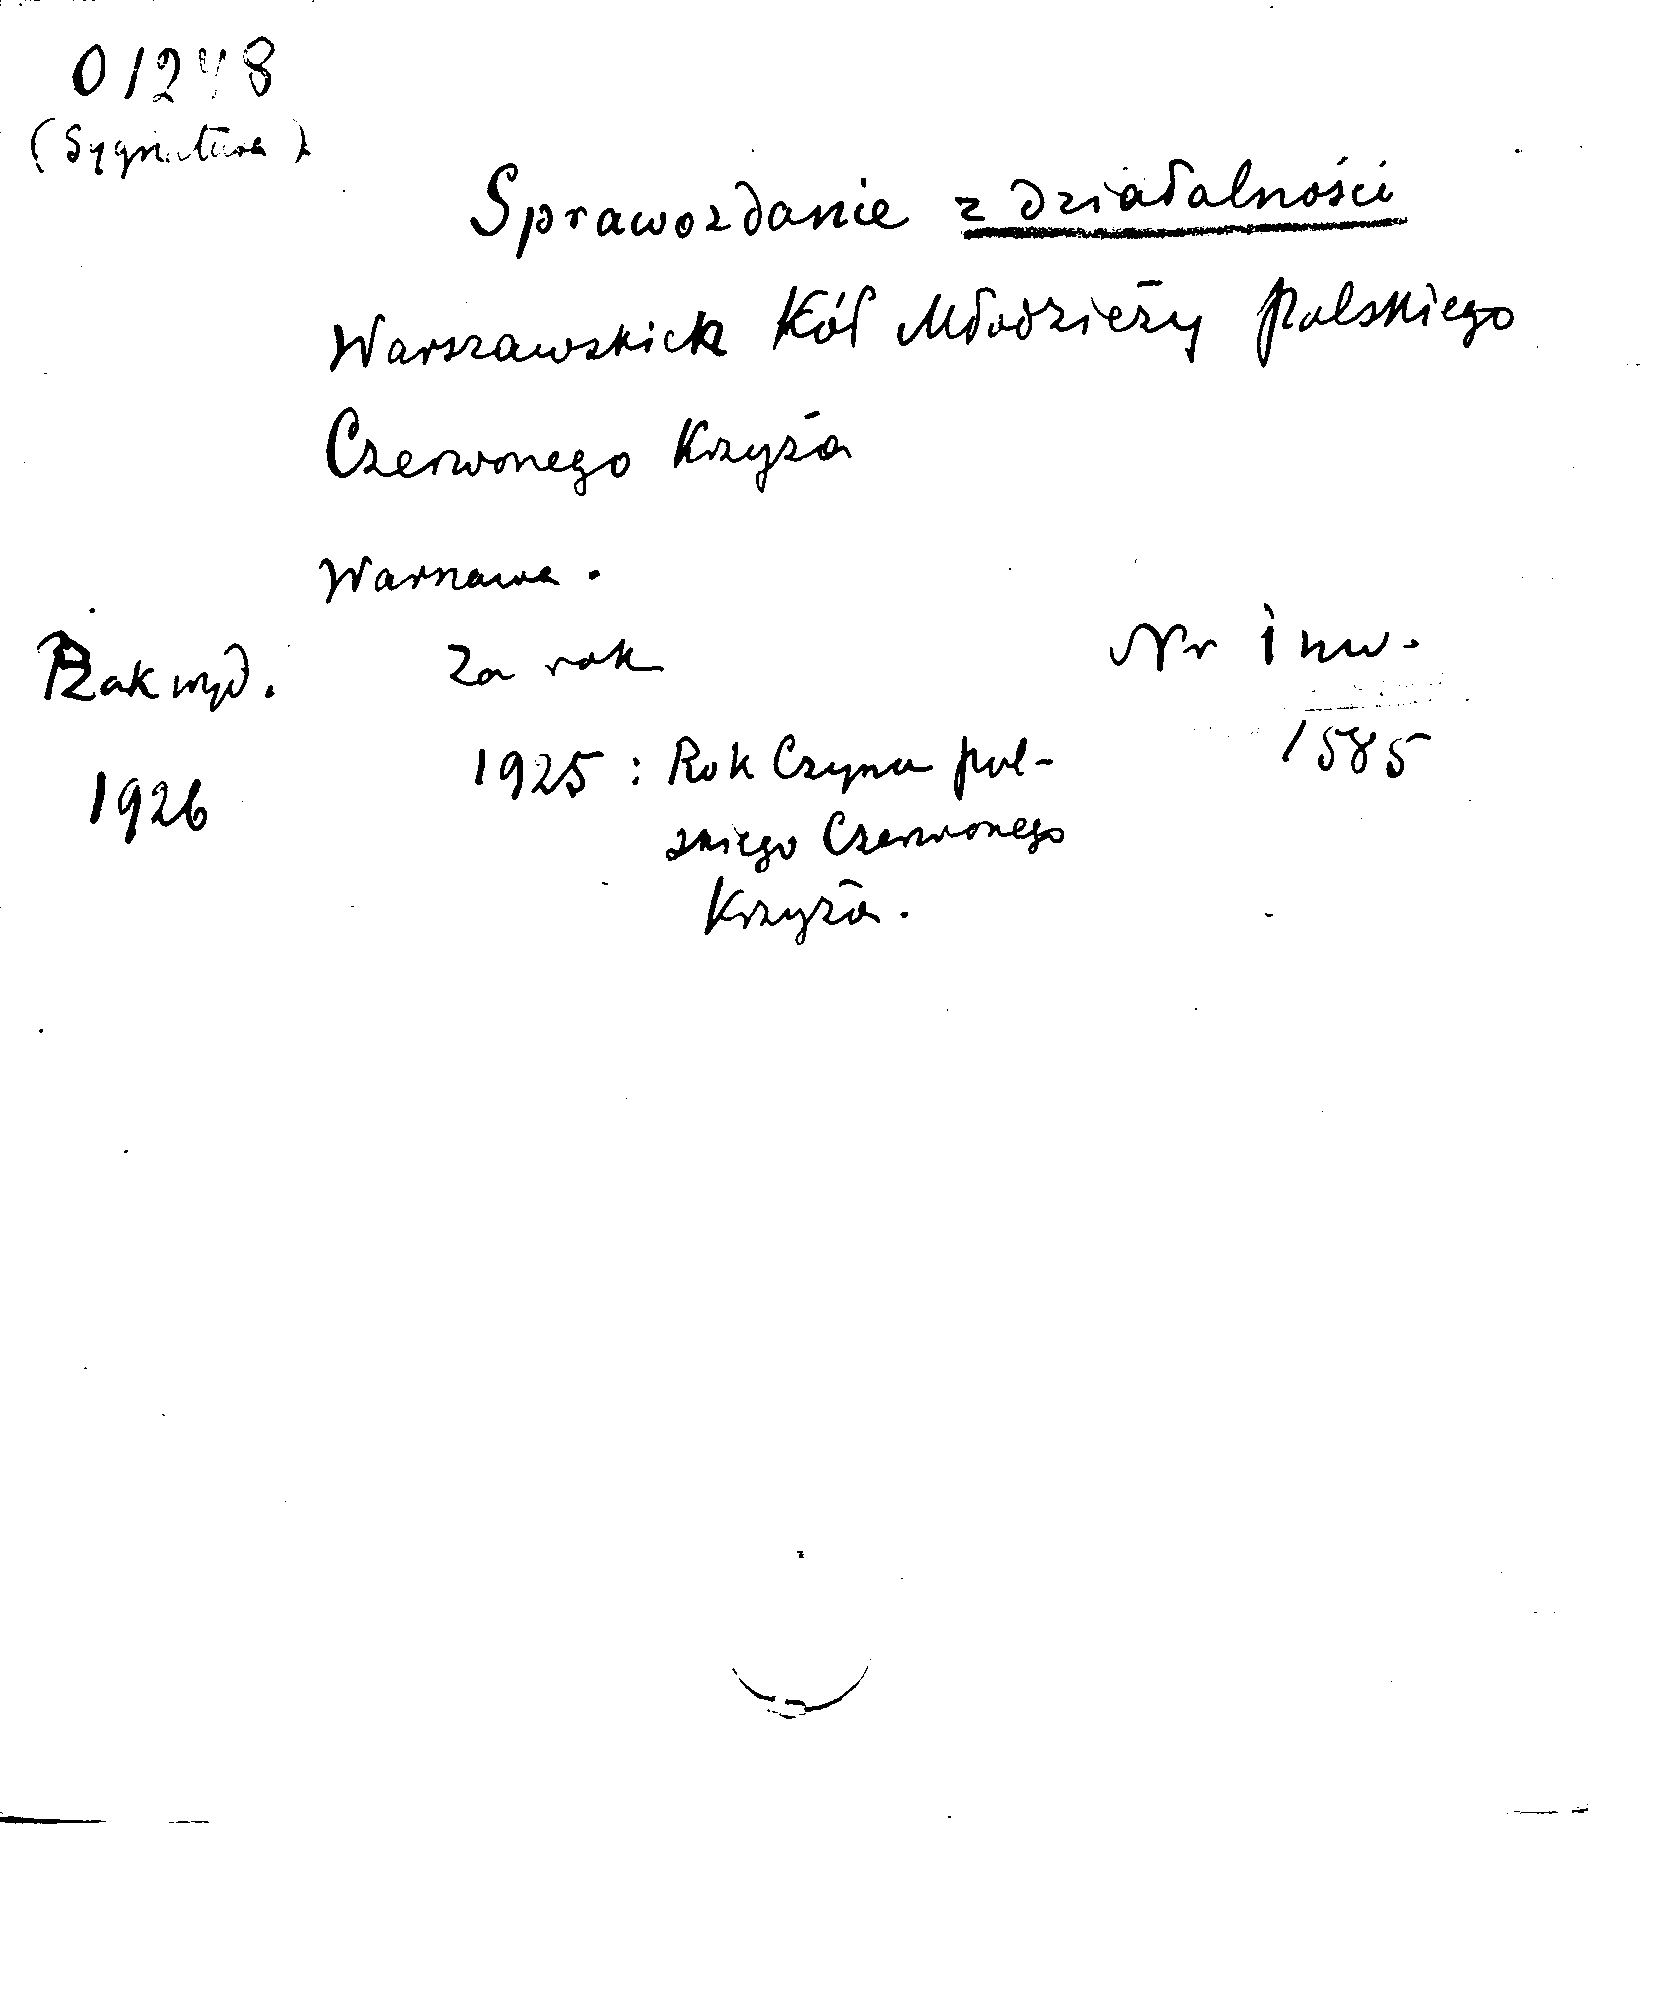 01248
(Sygnatura)
Sprawozdanie z działalności
Warszawskich Kół Młodzieży Polskiego
Czerwonego Krzyża
Warszawa.
Rok wyd. Za rok Nr inw.
1926 1925 : Rok Czynu pol- 1585
skiego Czerwonego
Krzyża.